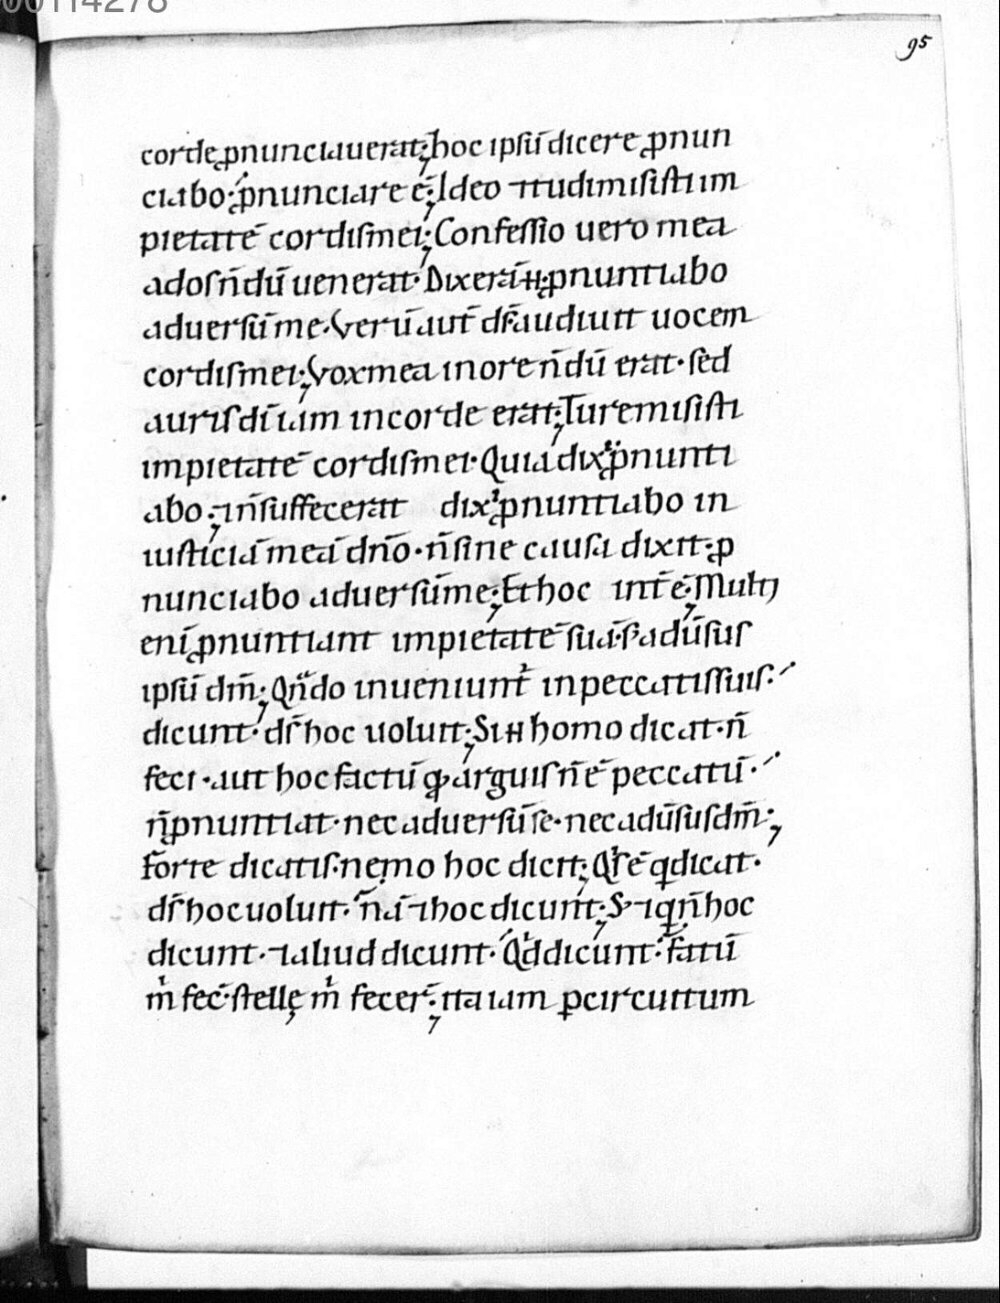 00114278
95
corde ꝓnunciauerat; hoc ipsū dicere ꝓnun
ciabo· ꝓnunciare ē; Ideo ⁊ tu dimisisti im
pietatē cordis mei; Confessio uero mea
ad os n̄dū uenerat· Dixerā H ꝓnuntiabo
aduersū me· Verū aut̄ d̄s audiuit uocem
cordis mei; Vox mea in ore n̄dū erat· sed
auris dī iam in corde erat; Tu remisisti
impietatē cordis mei· Quia dixi ꝓnunti
abo; n̄ suffecerat dixi ꝓnuntiabo in
iusticiā meā dn̄o· n̄ sine causa dixit· ꝓ
nunciabo aduersū me; Et hoc int̄ ē; Multi
enī ꝓnuntiant impietatē suā· s; adūsus
ipsū dm̄; Qn̄do inueniunt᷒ in peccatis suis·
dicunt· d̄s hoc uoluit; Si H homo dicat· n̄
feci· aut hoc factū qd arguis n̄ ē peccatū·
n̄ ꝓnuntiat· nec aduersū se· nec adūsus dm̄;
Forte dicatis· nemo hoc dicit; Qis ē q dicat·
d̄s hoc uoluit· nā ⁊ hoc dicunt;
dicunt· ⁊ aliud dicunt· Qd dicunt· fatū
m̄ fec̄· stellę m̄ fecer̄; Ita iam ꝑ circuitum